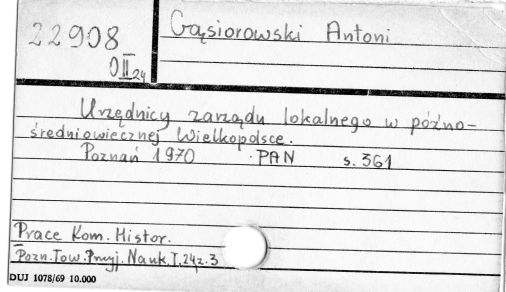 22908
0 II 24
Gąsiorowski Antoni
Urzędnicy zarządu lokalnego w późno-
średniowiecznej Wielkopolsce.
Poznań 1970 . PAN s. 361
Prace Kom. Histor.
Pozn. Tow. Przyj. Nauk, T. 24 z. 3
DUJ 1078/69 10.000